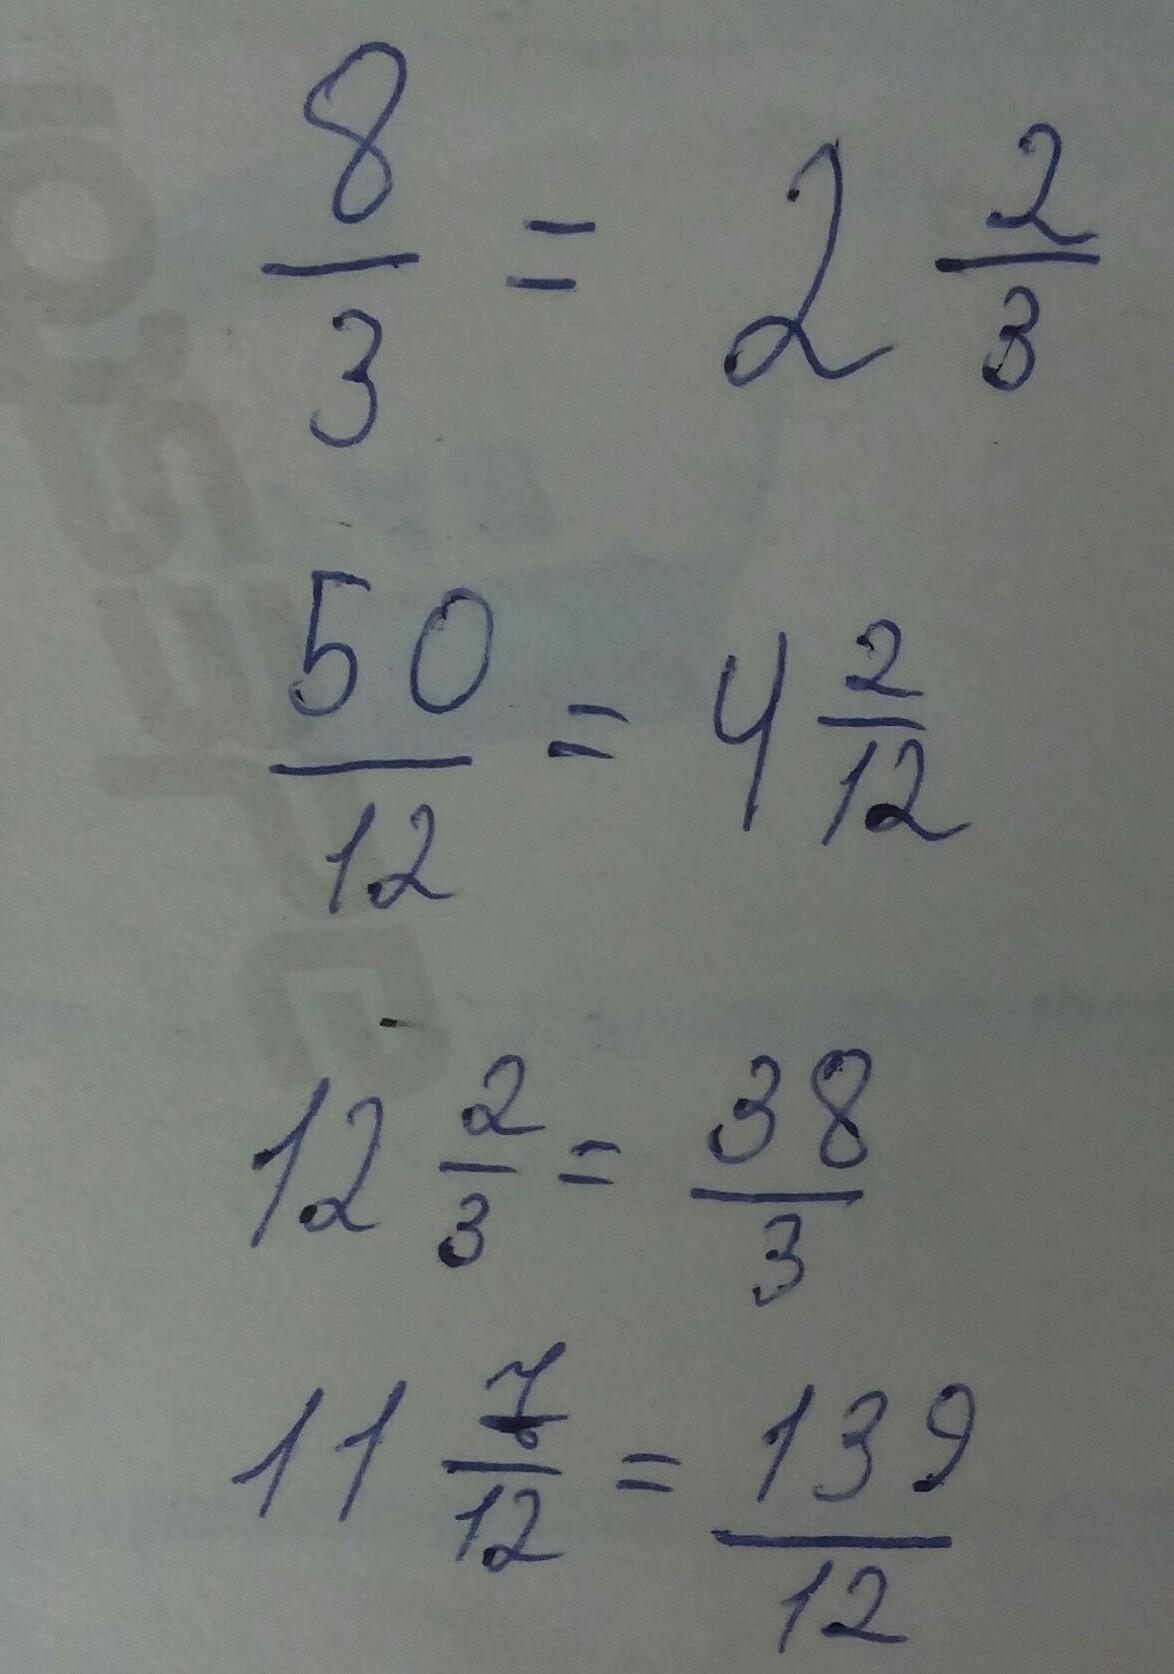 8/3 = 2 2/3
50/12 = 4 2/12
12 2/3 = 38/3
11 7/12 = 139/12